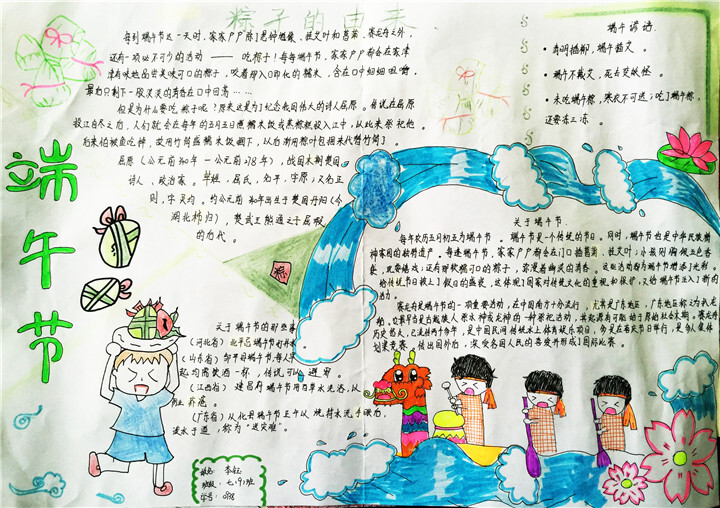 粽子的由来
端午节
每到端午节这一天时，家家户户除了悬钟馗像、挂艾叶和菖蒲、赛龙舟之外，
还有一项必不可少的活动 —— 吃粽子！每每端午节，家家户户都会在家津
津有味地品尝美味可口的粽子，咬着即入口即化的糯米，含在口中细细咀嚼，
最后只剩下一股淡淡的清香在口中回荡……
但是为什么要吃粽子呢？原来这是为了纪念我国伟大的诗人屈原。传说在屈原
投江自尽之后，人们就会在每年的五月五日煮糯米饭或蒸粽糕投入江中，以此来祭祀他
后来怕被鱼吃掉，故用竹筒盛糯米饭掷下，以后渐用粽叶包捆来代替竹筒了。
屈原（公元前340年－公元前278年），战国末期楚国
诗人、政治家。芈姓，屈氏，名平，字原，又名正
则，字灵均。约公元前340年出生于楚国丹阳（今
湖北秭归），楚武王熊通之子屈瑕
的后代。
端午谚语
· 清明插柳，端午插艾。
· 端午不戴艾，死去变妖怪。
· 未吃端午粽，寒衣不可送；吃了端午粽，
还要冻三冻。
关于端午节
每年农历五月初五为端午节。端午节是一个传统的节日。同时，端午节也是中华民族精
神家园的独特遗产。每逢端午节，家家户户都会在门口插菖蒲、挂艾叶；小孩则佩戴五色香
囊，玩耍嬉戏；还有那软糯可口的粽子，弥漫着幽灵的清香。这些活动都为端午节增添了光彩。
给传统节日披上了假日的盛装，这体现了国家对传统文化的重视和保护，又给端午节注入了新的
活力。
赛龙舟是端午节的一项重要活动，在中国南方十分流行，尤其是广东地区，广东地区称为扒龙
舟。它最早当是古越族人祭水神或龙神的一种祭祀活动，其起源有可能始于原始社会末期。赛龙舟
历史悠久，已流传两千多年，是中国民间传统水上体育娱乐项目，多是在喜庆节日举行，是多人集体
划桨竞赛。传出国外后，深受各国人民的喜爱并形成了国际比赛。
关于端午节的那些事
（河北省）北平忌端午节打井水
（山东省）邹平县端午节，每人早
起均需饮酒一杯，传说可以避邪
（江西省）建昌府端午节用百草水洗浴，以
防止疥疮。
（广东省）从化县端午节正午以烧符水洗手眼后，
泼水于道，称为“送灾难”。
粽
姓名：李钰
班级：七（9）班
学号：